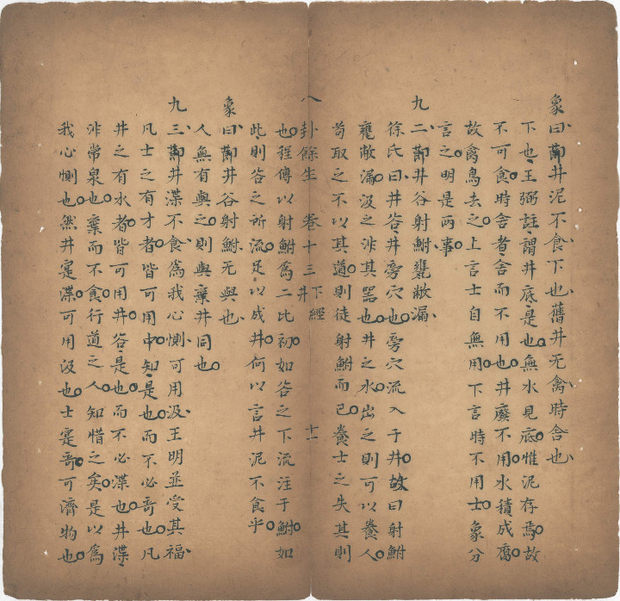 象曰井泥不食下也舊井无禽時舍也
下也王弼註謂井底是也無水見底惟泥存焉故
不可食時舍者舍而不用也井廢不用水積成腐
故禽鳥去之上言士自無用下言時不用士象分
言之明是兩事
九二井谷射鮒甕敝漏
徐氏曰井谷井旁穴也旁穴流入于井故曰射鮒
甕敝漏汲之非其器也井之水出之則可以養人
苟取之不以其道則徒射鮒而已養士之失其則
八卦餘生 卷十三 下經 井 十一
也程傳以射鮒為二比初如谷之下流注于鮒如
此則谷之所流足以成井何以言井泥不食乎
象曰井谷射鮒无與也
人無有與之則與棄井同也
九三井渫不食為我心惻可用汲王明並受其福
凡士之有才者皆可用中知是也而不必奇也凡
井之有水者皆可用井谷是也而不必渫也井渫
非常泉也棄而不食行道之人知惜之矣是以為
我心惻也然井寔渫可用汲也士寔奇可濟物也